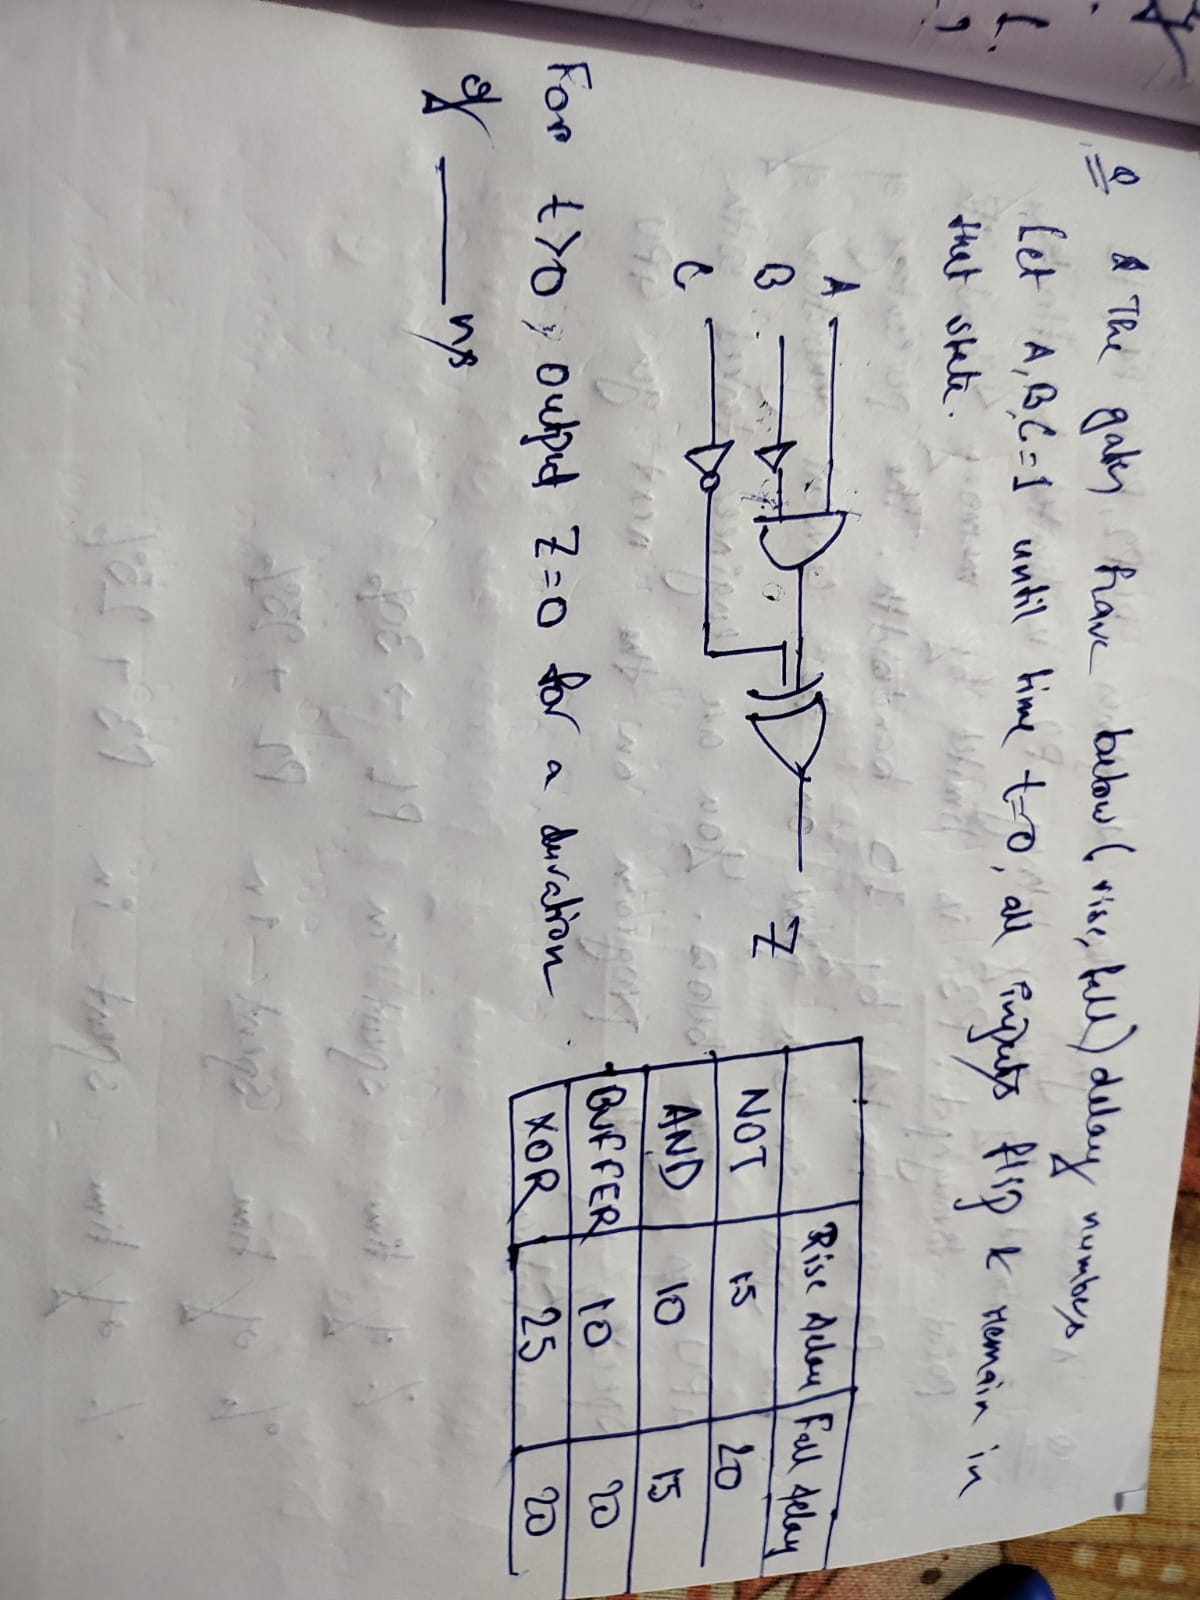 Q The gates have below (rise, fall) delay numbers
Let A, B, C = 1 until time t=0, all inputs flip & remain in
that state.
A
B
C
Z
Rise delay Fall delay
NOT 15 20
AND 10 15
BUFFER 10 20
XOR 25 20
For t>0, output Z=0 for a duration
of ____ ns